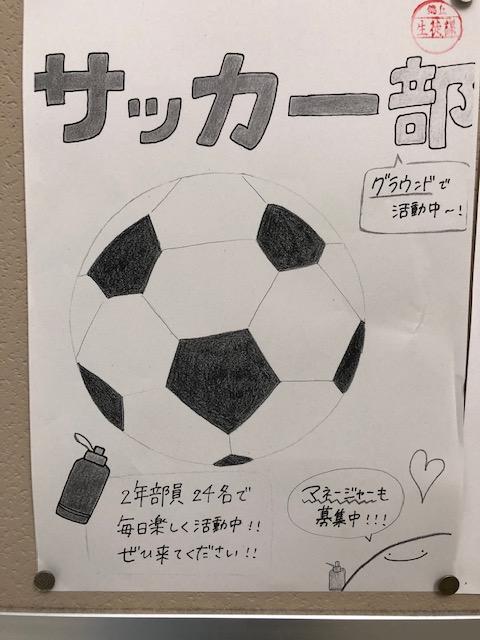 生徒課
サッカー部
グラウンドで
活動中〜!
2年部員 24名で
毎日楽しく活動中!!
ぜひ来てください!!
マネージャーも
募集中!!!